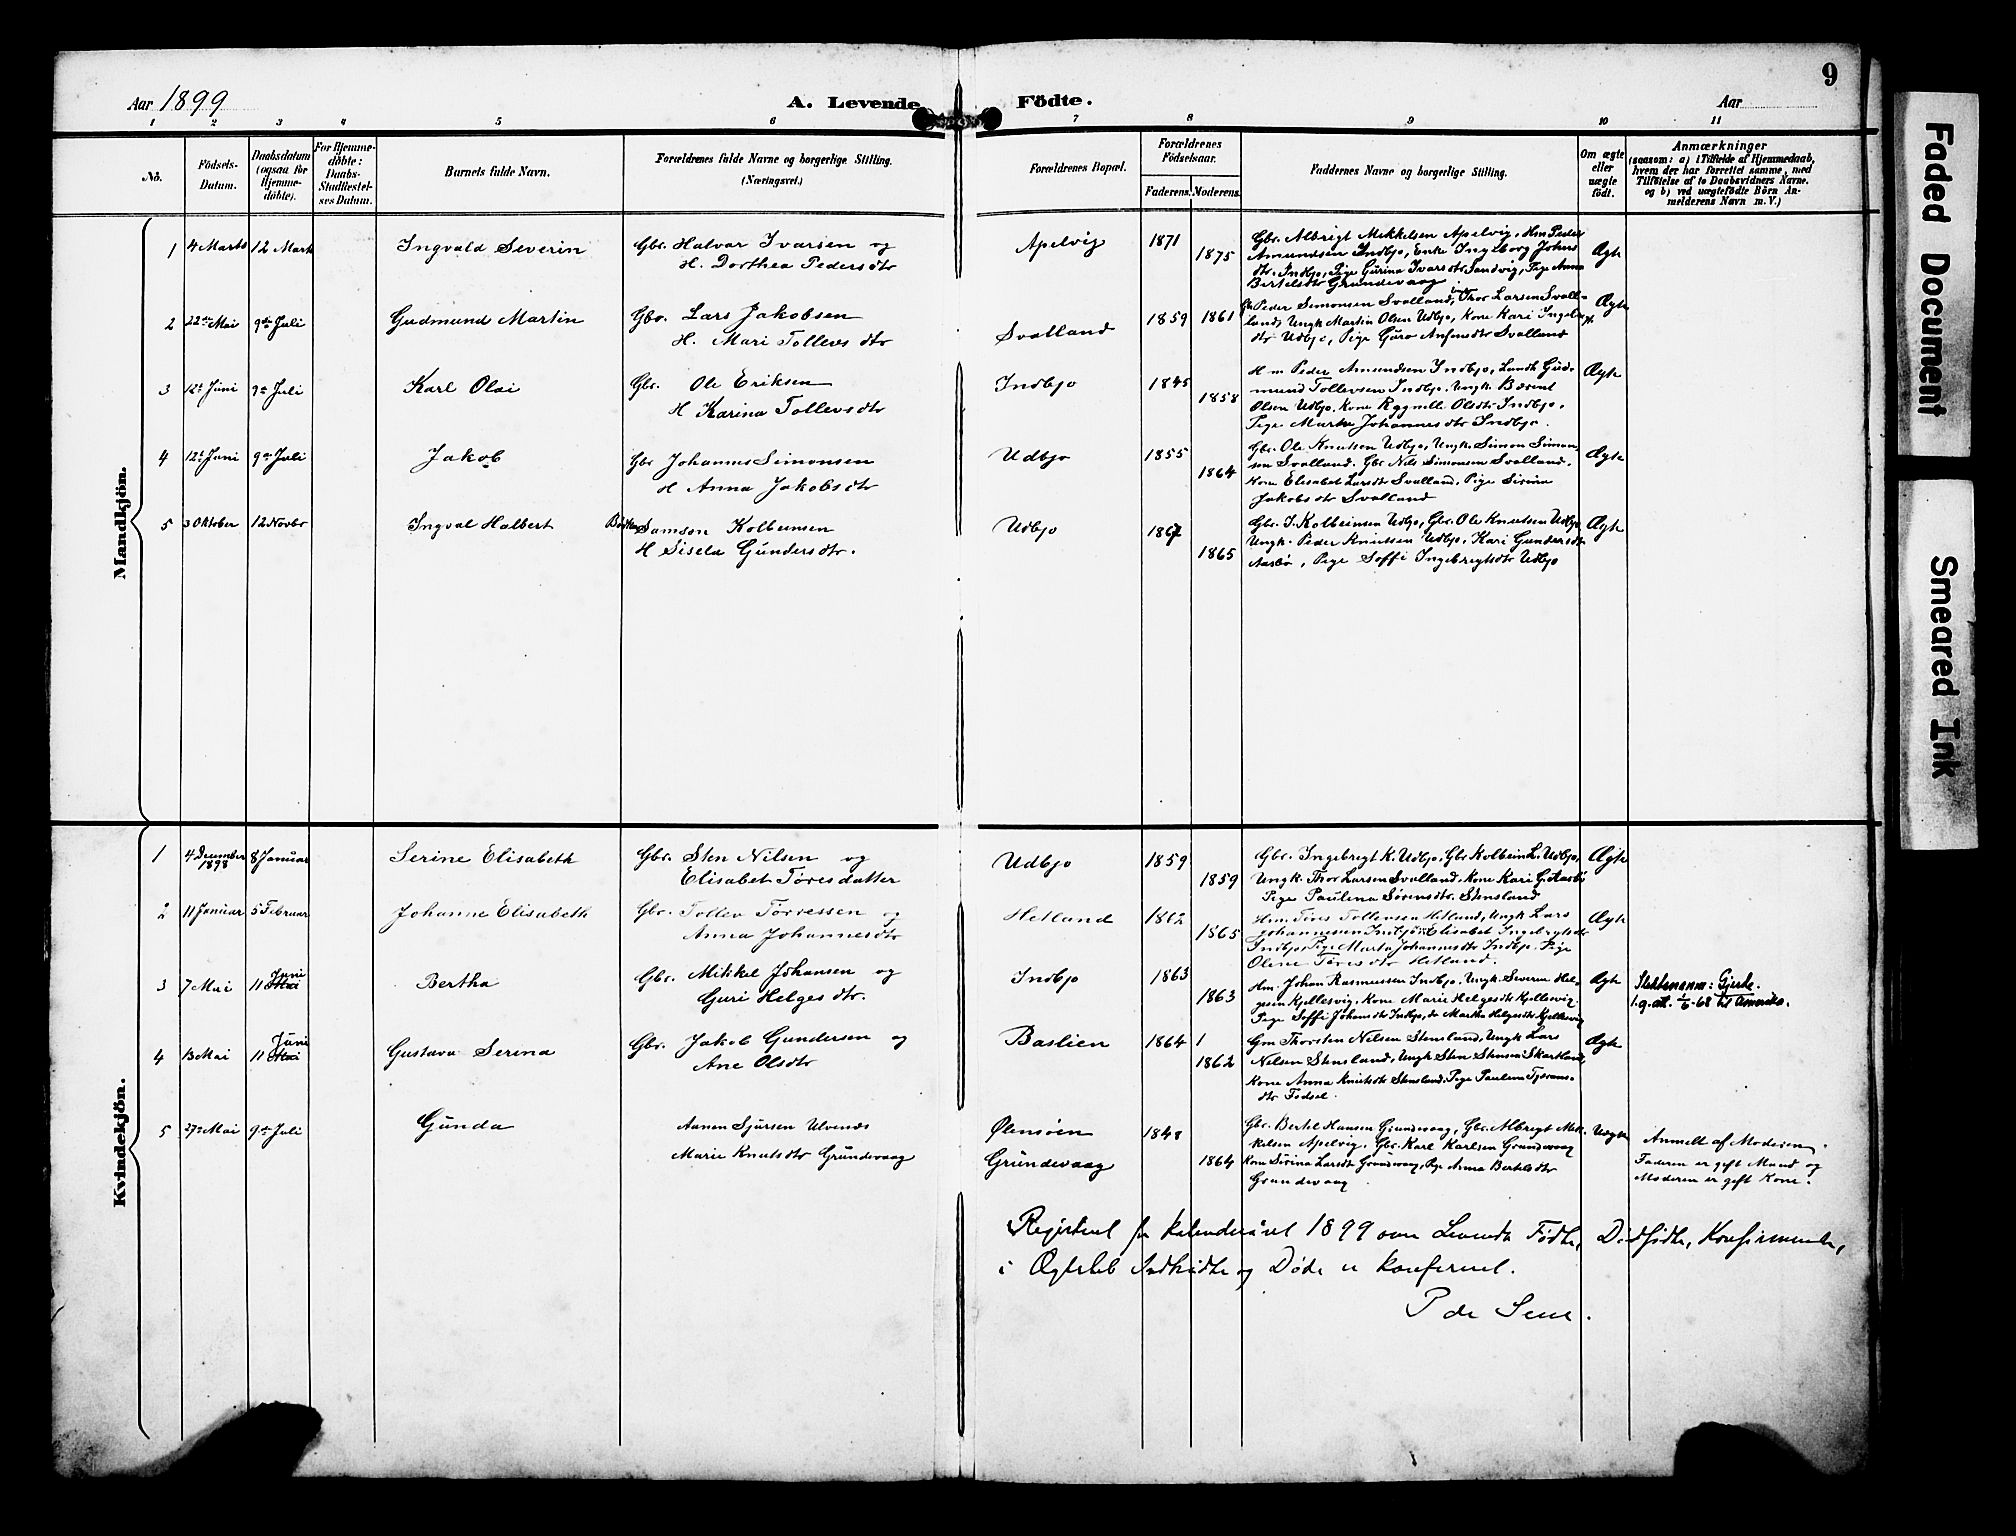 9
Aar 1899
A. Levende Födte.
Aar
1 2 3 4 5 6 7 8 9 10 11
No.
Födsels-Datum.
Daabsdatum (ogsaa for Hjemme-döbte).
For Hjemme-döbte: Daabs-Stadfæstel-ses Datum.
Barnets fulde Navn.
Forældrenes fulde Navne og borgerlige Stilling. (Næringsvei.)
Forældrenes Bopæl.
Forældrenes Födselsaar.
Faderens. Moderens.
Faddernes Navne og borgerlige Stilling.
Om ægte eller uægte födt.
Anmærkninger
(saasom: a) i Tilfælde af Hjemmedaab,
hvem der har forrettet samme, med
Tilföielse af to Daabsvidners Navne,
og b) ved uægtefödte Börn An-
melderens Navn m. V.)
Mandkjön.
1 4 Marts 12 Mart Ingvald Severin Gbr. Halvor Ivarsen og
H. Dorthea Pedersdtr
Apelvig 1871 1875
Gbr. Albrigt Mikkelsen Apelvig, Hm Peder
Amundsen Indbjo, Enke Ingeborg Johns
dtr. Indbjo, Pige Gurina Ivarsdtr Sandvig, Pige Anna
Bertelsdtr Grundevaag
Ægte
2 22de Mai 9de Juli Gudmund Martin Gbr. Lars Jakobsen
H. Mari Tollevsdtr
Svalland 1859 1861
Gbr Peder Simonsen Svalland, Ungk Thor Larsen Sval-
land, Ungk Martin Olsen Udbjo, Kone Kari Ingebr
dtr Udbjo, Pige Guro Anfinsdtr Svalland
Ægte
3 12te Juni 9de Juli Karl Olai Gbr. Ole Eriksen
H Karina Tollevsdtr
Indbjo 1845 1858
Hm Peder Amundsen Indbjo, Gud-
mund Tollevsen Indbjo, Ungk. Berent
Olsen Udbjo, Kone Olsdtr Indbjo,
Pige Marta Johannesdtr Indbjo.
Ægte
4 12te Juni 9de Juli Jakob Gbr Johannes Simonsen
H Anna Jakobsdtr
Udbjo 1855 1864
Gbr. Ole Knutsen Udbjo, Ungk. Simon Simon-
sen Svalland. Gbr Nils Simonsen Svalland,
Kone Elisabet Larsdtr Svalland, Pige Sirina
Jakobsdtr Svalland
Ægte
5 3 Oktober 12 Novbr Ingval Halbert Samson Kolbeinsen
H Sisela Gundersdtr.
Udbjo 1867 1865
Gbr. I. Kolbeinsen Udbjo, Gbr. Ole Knutsen Udbjo
Ungk. Peder Knutsen Udbjo. Kari Gundersdtr
Aasbø, Pige Soffi Ingebregtsdtr Udbjo
Ægte
Kvindekjön.
1 4 December 1898 8 Januar Serine Elisabeth Gbr. Sten Nilsen og
Elisabet Töresdatter
Udbjo 1859 1859
Gbr. Ingebregt K. Udbjo, Gbr Kolbein L. Udbjo,
Ungk. Thor Larsen Svalland, Kone Kari G. Aasbø
Pige Paulina Sörensdtr. Stensland
Ægte
2 11 Januar 5 Februar Johanne Elisabeth Gbr. Tollev Törressen og
Anna Johannesdtr
Hetland 1862 1865
Hm. Töres Tollevsen Hetland, Ungk Lars
Johannessen Indbjo, Elisabet Ingebrigtsdtr
Indbjo, Pige Marta Johannesdtr Indbjo, Pige
Oline Töresdtr Hetland.
Ægte
3 7 Mai 11 Mai Juni Bertha Gbr. Mikkel Johansen og
Guri Helgesdtr.
Indbjo 1863 1863
Hm. Johan Rasmussen Indbjo, Ungk. Severin Hel-
gesen Kjellesvig, Kone Marie Helgesdtr Kjellesvig
Pige Soffi Johansdtr Indbjo, do Martha Helgesdtr Kjellesvig
Ægte
Slektsnavn: Gjerde.
4 13 Mai 11 Mai Juni Gustava Serina Gbr. Jakob Gundersen og
Ane Olsdtr
Baslien 1864 1862
Gm Thorsten Nilsen Stensland, Ungk Lars
Nilsen Stensland, Ungk Sten Stensen Skartland,
Kone Anna Knutsdtr Stensland, Pige Paulina
dtr Födsel.
Ægte
5 27de Mai 9de Juli Gunda Aanen Sjursen Ulvenes
Marie Knutsdtr Grundevaag
Ølensöen
Grundevaag
1848 1864
Gbr. Bertel Hansen Grundevaag, Gbr. Albregt Mik-
kelsen Apelvig, Gbr. Karl Karlsen Grundevaag
Kone Sirina Larsdtr Grundevaag, Pige Anna Bertelsdtr
Grundevaag.
Uægte
Anmelt af Moderen.
Faderen er gift Mand og
Moderen er gift Kone.
Registeret for kalenderåret 1899 over Levende Födte, Dødfødte, Konfirmerte,
i Ægteskab Indtrådte og Døde er konferert.
P de Seue.
Faded Document
Smeared Ink